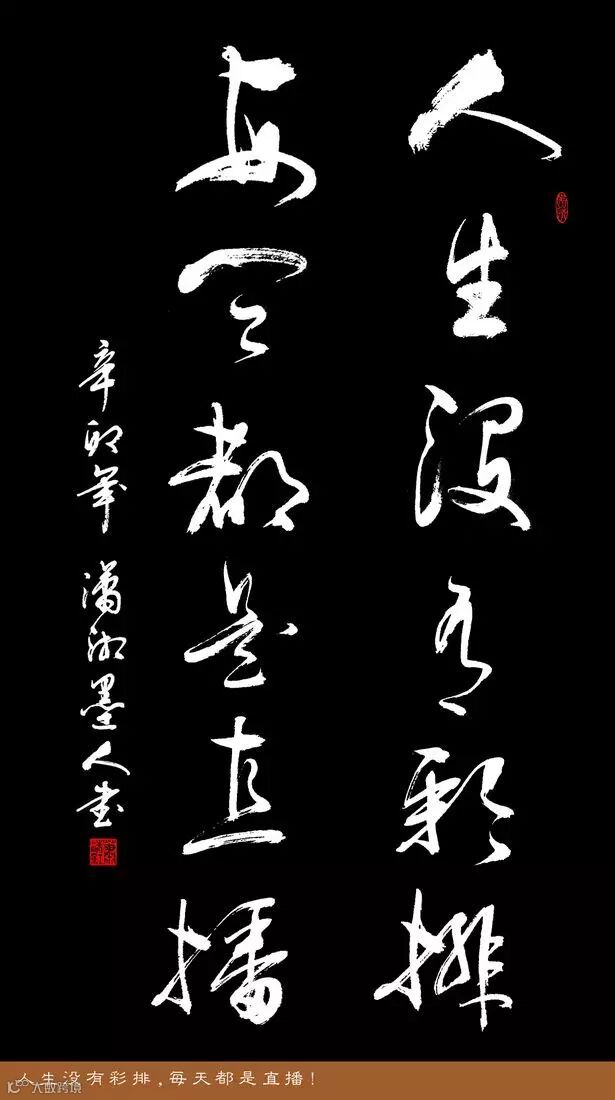 人生没有彩排
每天都是直播
辛卯年 潇湘墨人书
人生没有彩排,每天都是直播!
大数跨境